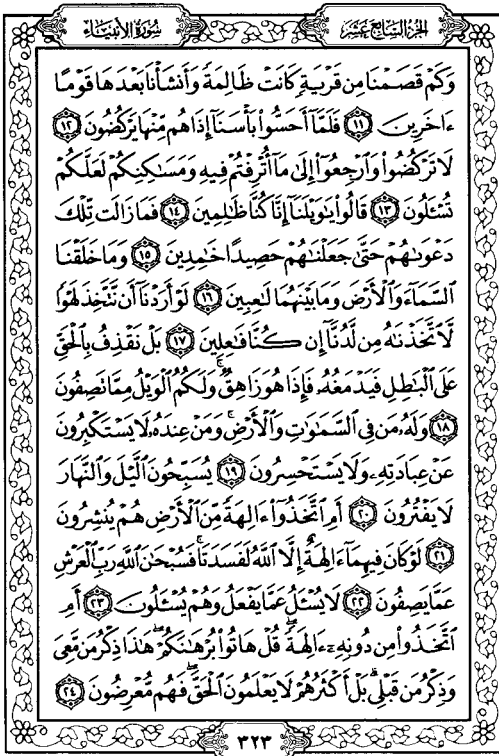 سُورَةُ الأَنبِيَاء
الجُزءُ السَّابِعَ عَشَرَ
وَكَمْ قَصَمْنَا مِن قَرْيَةٍ كَانَتْ ظَالِمَةً وَأَنشَأْنَا بَعْدَهَا قَوْمًا
ءَاخَرِينَ ١١ فَلَمَّآ أَحَسُّوا۟ بَأْسَنَآ إِذَا هُم مِّنْهَا يَرْكُضُونَ ١٢
لَا تَرْكُضُوا۟ وَٱرْجِعُوٓا۟ إِلَىٰ مَآ أُتْرِفْتُمْ فِيهِ وَمَسَٰكِنِكُمْ لَعَلَّكُمْ
تُسْـَٔلُونَ ١٣ قَالُوا۟ يَٰوَيْلَنَآ إِنَّا كُنَّا ظَٰلِمِينَ ١٤ فَمَا زَالَت تِّلْكَ
دَعْوَىٰهُمْ حَتَّىٰ جَعَلْنَٰهُمْ حَصِيدًا خَٰمِدِينَ ١٥ وَمَا خَلَقْنَا
ٱلسَّمَآءَ وَٱلْأَرْضَ وَمَا بَيْنَهُمَا لَٰعِبِينَ ١٦ لَوْ أَرَدْنَآ أَن نَّتَّخِذَ لَهْوًا
لَّٱتَّخَذْنَٰهُ مِن لَّدُنَّآ إِن كُنَّا فَٰعِلِينَ ١٧ بَلْ نَقْذِفُ بِٱلْحَقِّ
عَلَى ٱلْبَٰطِلِ فَيَدْمَغُهُۥ فَإِذَا هُوَ زَاهِقٌ ۚ وَلَكُمُ ٱلْوَيْلُ مِمَّا تَصِفُونَ
١٨ وَلَهُۥ مَن فِى ٱلسَّمَٰوَٰتِ وَٱلْأَرْضِ ۚ وَمَنْ عِندَهُۥ لَا يَسْتَكْبِرُونَ
عَنْ عِبَادَتِهِۦ وَلَا يَسْتَحْسِرُونَ ١٩ يُسَبِّحُونَ ٱلَّيْلَ وَٱلنَّهَارَ
لَا يَفْتُرُونَ ٢٠ أَمِ ٱتَّخَذُوٓا۟ ءَالِهَةً مِّنَ ٱلْأَرْضِ هُمْ يُنشِرُونَ
٢١ لَوْ كَانَ فِيهِمَآ ءَالِهَةٌ إِلَّا ٱللَّهُ لَفَسَدَتَا ۚ فَسُبْحَٰنَ ٱللَّهِ رَبِّ ٱلْعَرْشِ
عَمَّا يَصِفُونَ ٢٢ لَا يُسْـَٔلُ عَمَّا يَفْعَلُ وَهُمْ يُسْـَٔلُونَ ٢٣ أَمِ
ٱتَّخَذُوا۟ مِن دُونِهِۦٓ ءَالِهَةً ۖ قُلْ هَاتُوا۟ بُرْهَٰنَكُمْ ۖ هَٰذَا ذِكْرُ مَن مَّعِىَ
وَذِكْرُ مَن قَبْلِى ۗ بَلْ أَكْثَرُهُمْ لَا يَعْلَمُونَ ٱلْحَقَّ ۖ فَهُم مُّعْرِضُونَ ٢٤
٣٢٣